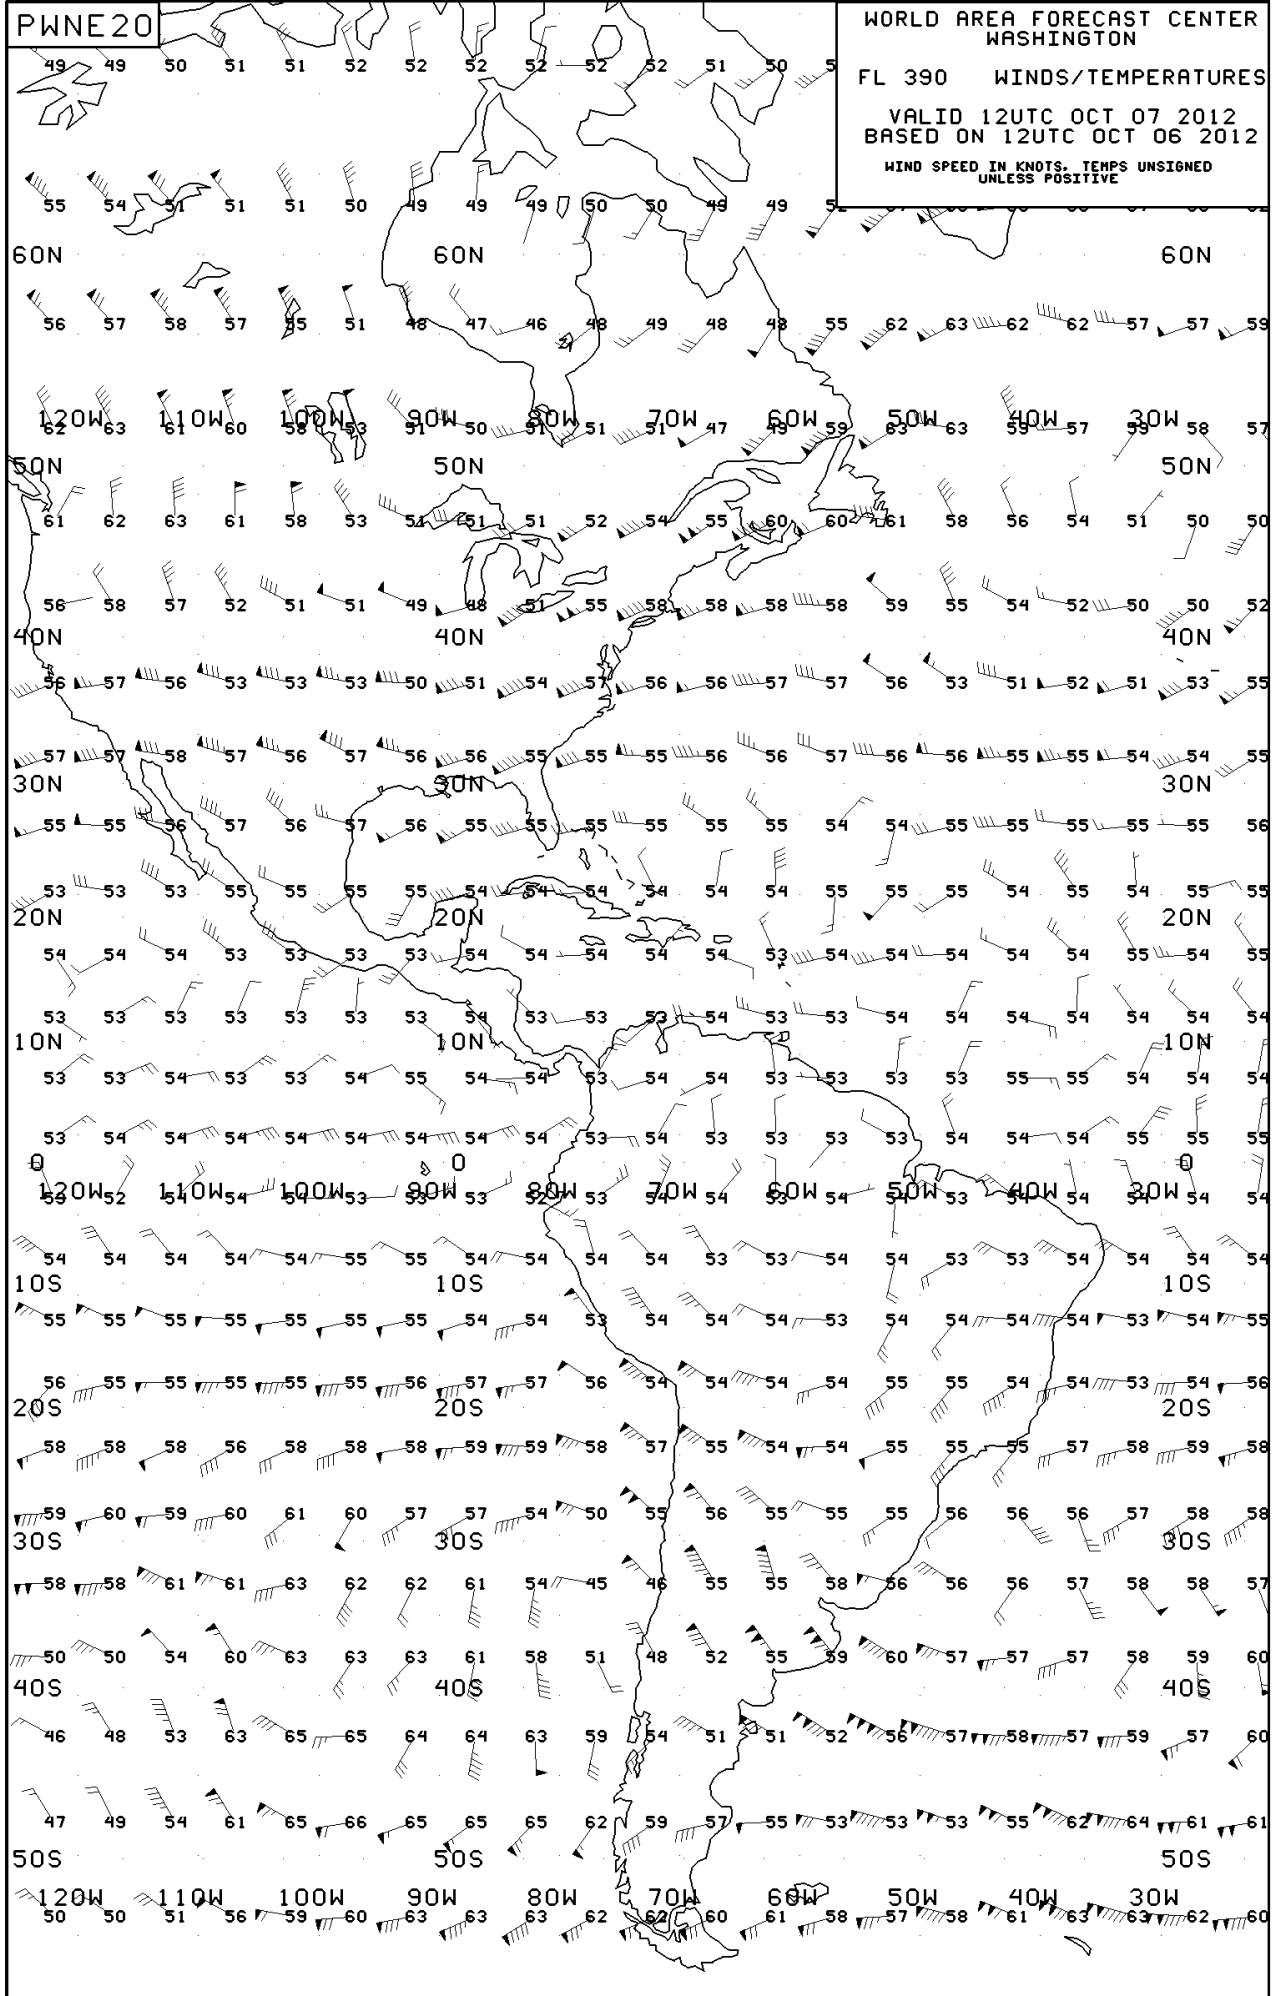 PWNE20
WORLD AREA FORECAST CENTER
WASHINGTON
FL 390 WINDS/TEMPERATURES
VALID 12UTC OCT 07 2012
BASED ON 12UTC OCT 06 2012
WIND SPEED IN KNOTS, TEMPS UNSIGNED
UNLESS POSITIVE
49 49 50 51 51 52 52 52 52 52 52 51 50
55 54 51 51 51 50 49 49 49 50 50 49 49
60N 60N 60N
56 57 58 57 55 51 48 47 46 48 49 48 48 55 62 63 62 62 57 57 59
120W 110W 100W 90W 80W 70W 60W 50W 40W 30W
62 63 61 60 58 53 51 50 51 51 51 47 49 59 63 63 59 57 59 58 57
50N 50N 50N
61 62 63 61 58 53 51 51 51 52 54 55 60 60 61 58 56 54 51 50 50
56 58 57 52 51 51 49 48 51 55 58 58 58 58 59 55 54 52 50 50 52
40N 40N 40N
56 57 56 53 53 53 50 51 54 57 56 56 57 57 56 53 51 52 51 53 55
57 57 58 57 56 57 56 56 55 55 55 56 56 57 56 56 55 55 54 54 55
30N 30N 30N
55 55 56 57 56 57 56 55 55 55 55 55 55 54 54 55 55 55 55 55 56
53 53 53 55 55 55 55 54 54 54 54 54 54 55 55 55 54 55 54 55 55
20N 20N 20N
54 54 54 53 53 53 53 54 54 54 54 54 53 54 54 54 54 54 55 54 55
53 53 53 53 53 53 53 54 53 53 53 54 53 53 54 54 54 54 54 54 54
10N 10N 10N
53 53 54 53 53 54 55 54 54 53 54 54 53 53 53 53 55 55 54 54 54
53 54 54 54 54 54 54 54 54 53 54 53 53 53 53 54 54 54 55 55 55
0 0 0
120W 110W 100W 90W 80W 70W 60W 50W 40W 30W
53 52 54 54 54 53 53 53 52 53 54 54 53 54 54 53 54 54 54 54 54
54 54 54 54 54 55 55 54 54 54 54 53 53 54 54 53 53 54 54 54 54
10S 10S 10S
55 55 55 55 55 55 55 54 54 53 54 54 54 53 54 54 54 54 53 54 55
56 55 55 55 55 55 56 57 57 56 54 54 54 54 55 55 54 54 53 54 56
20S 20S 20S
58 58 58 56 58 58 58 59 59 58 57 55 54 54 55 55 55 57 58 59 58
59 60 59 60 61 60 57 57 54 50 55 56 55 55 55 56 56 56 57 58 58
30S 30S 30S
58 58 61 61 63 62 62 61 54 45 46 55 55 58 56 56 56 57 58 58 57
50 50 54 60 63 63 63 61 58 51 48 52 55 59 60 57 57 57 58 59 60
40S 40S 40S
46 48 53 63 65 65 64 64 63 59 54 51 51 52 56 57 58 57 59 57 60
47 49 54 61 65 66 65 65 65 62 59 57 55 53 53 53 55 62 64 61 61
50S 50S 50S
120W 110W 100W 90W 80W 70W 60W 50W 40W 30W
50 50 51 56 59 60 63 63 63 62 62 60 61 58 57 58 61 63 63 62 60